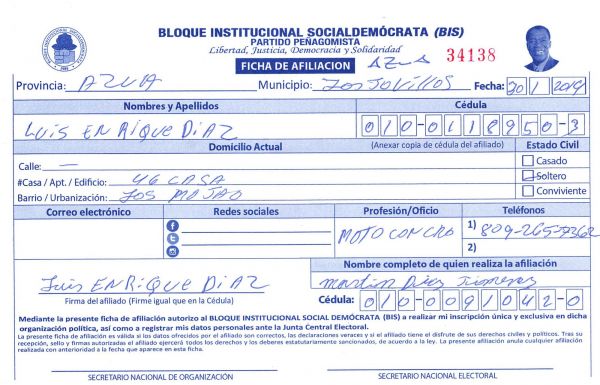 BLOQUE INSTITUCIONAL SOCIALDEMÓCRATA (BIS)
PARTIDO PEÑAGOMISTA
Libertad, Justicia, Democracia y Solidaridad
FICHA DE AFILIACION AZUA 34138
Provincia: AZUA Municipio: Los Jovillos Fecha: 20/1/2019
Nombres y Apellidos Cédula
LUIS ENRIQUE DIAZ 010-0118950-3
Domicilio Actual (Anexar copia de cédula del afiliado) Estado Civil
Calle: — Casado
#Casa / Apt. / Edificio: 46 CASA Soltero
Barrio / Urbanización: LOS MOJAO Conviviente
Correo electrónico Redes sociales Profesión/Oficio Teléfonos
MOTOCONCHO 1) 809-265-7362
2)
Nombre completo de quien realiza la afiliación
Luis ENRIQUE DIAZ martin Diaz
Firma del afiliado (Firme igual que en la Cédula) Cédula: 010-0091042-0
Mediante la presente ficha de afiliación autorizo al BLOQUE INSTITUCIONAL SOCIAL DEMÓCRATA (BIS) a realizar mi inscripción única y exclusiva en dicha
organización política, así como a registrar mis datos personales ante la Junta Central Electoral.
La presente ficha de afiliación es válida si los datos ofrecidos por el afiliado son correctos, las declaraciones veraces y si el afiliado tiene el disfrute de sus derechos civiles y políticos. Tras su
recepción, sello y firmas autorizadas el afiliado ejercerá todos los derechos y los deberes estatutariamente sancionados, de acuerdo a la ley. La presente afiliación anula cualquier afiliación
realizada con anterioridad a la fecha que aparece en esta ficha.
SECRETARIO NACIONAL DE ORGANIZACIÓN SECRETARIO NACIONAL ELECTORAL